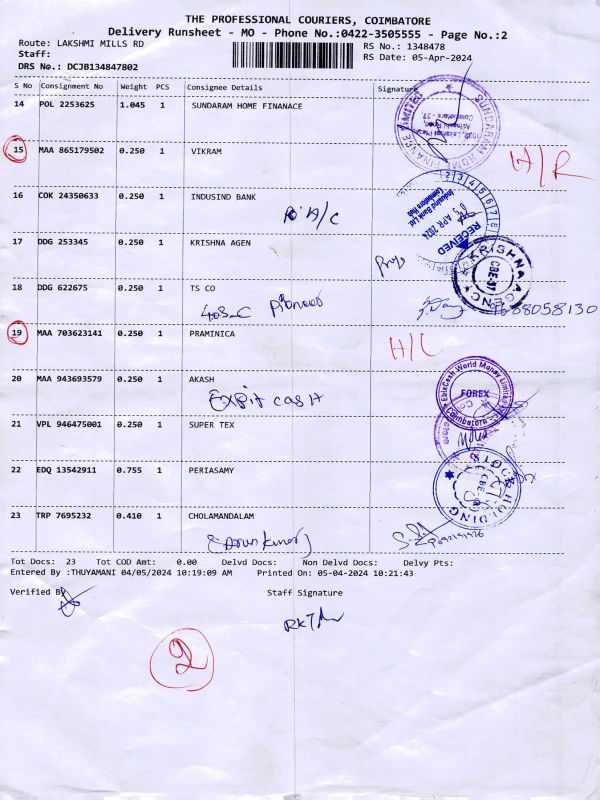 THE PROFESSIONAL COURIERS, COIMBATORE
Delivery Runsheet - MO - Phone No.:0422-3505555 - Page No.:2
Route: LAKSHMI MILLS RD
RS No.: 1348478
Staff:
RS Date: 05-Apr-2024
DRS No.: DCJB134847802
S No Consignment No Weight PCS Consignee Details Signature
14 POL 2253625 1.045 1 SUNDARAM HOME FINANACE
15 MAA 865179502 0.250 1 VIKRAM
H/R
16 COK 24350633 0.250 1 INDUSIND BANK
A/C
IndusInd Bank Ltd
05 APR 2024
RECEIVED
17 DDG 253345 0.250 1 KRISHNA AGEN
KRISHNA AGENCY
CBE-37
18 DDG 622675 0.250 1 TS CO
Pioneer
9688058130
19 MAA 703623141 0.250 1 PRAMINICA
H/L
20 MAA 943693579 0.250 1 AKASH
Expit cash
EbixCash World Money Limited
FOREX
Coimbatore
21 VPL 946475001 0.250 1 SUPER TEX
22 EDQ 13542911 0.755 1 PERIASAMY
STOCK HOLDING
23 TRP 7695232 0.410 1 CHOLAMANDALAM
Tot Docs: 23 Tot COD Amt: 0.00 Delvd Docs: Non Delvd Docs: Delvy Pts:
Entered By :THUYAMANI 04/05/2024 10:19:09 AM Printed On: 05-04-2024 10:21:43
Verified By
Staff Signature
2